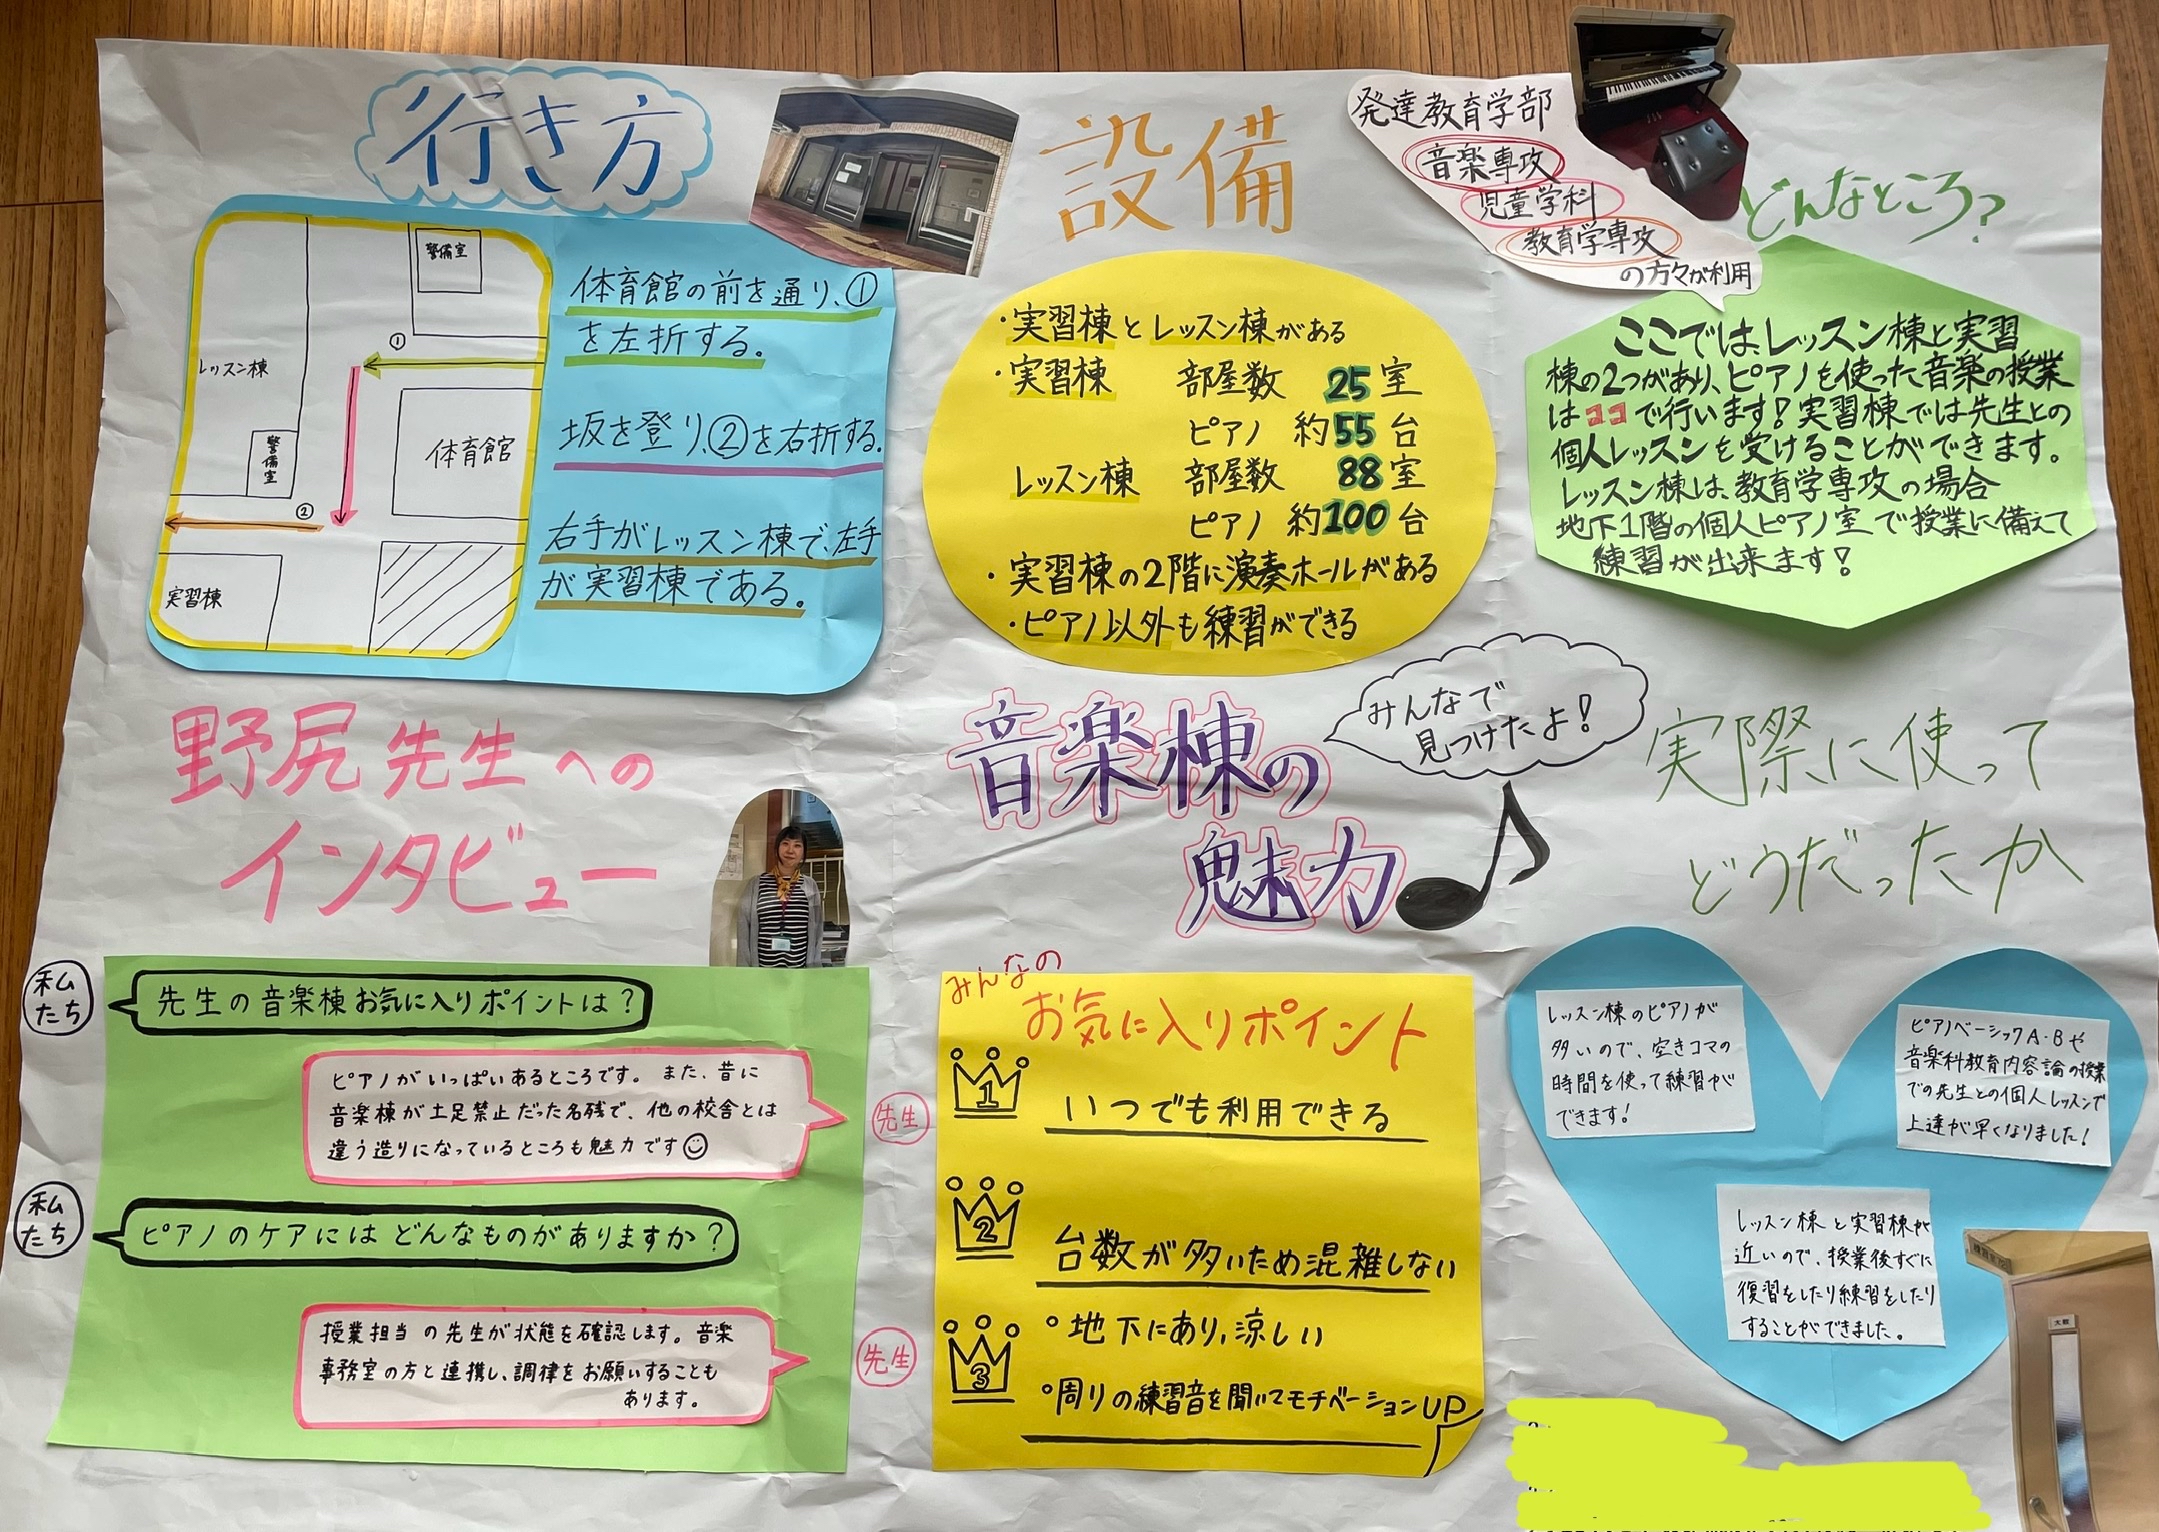 行き方
警備室
①
レッスン棟
警備室
体育館
②
実習棟
体育館の前を通り、①
を左折する。
坂を登り、②を右折する。
右手がレッスン棟で、左手
が実習棟である。
設備
・実習棟とレッスン棟がある
・実習棟 部屋数 25室
ピアノ 約55台
レッスン棟 部屋数 88室
ピアノ 約100台
・実習棟の2階に演奏ホールがある
・ピアノ以外も練習ができる
発達教育学部
音楽専攻
児童学科
教育学専攻
の方々が利用
どんなところ?
ここでは、レッスン棟と実習
棟の2つがあり、ピアノを使った音楽の授業
はココで行います!実習棟では先生との
個人レッスンを受けることができます。
レッスン棟は、教育学専攻の場合
地下1階の個人ピアノ室で授業に備えて
練習が出来ます!
野尻先生への
インタビュー
私たち
先生の音楽棟お気に入りポイントは?
ピアノがいっぱいあるところです。また、昔に
音楽棟が土足禁止だった名残で、他の校舎とは
違う造りになっているところも魅力です☺
先生
私たち
ピアノのケアにはどんなものがありますか?
授業担当の先生が状態を確認します。音楽
事務室の方と連携し、調律をお願いすることも
あります。
先生
音楽棟の
魅力
みんなで
見つけたよ!
みんなの
お気に入りポイント
1
いつでも利用できる
2
台数が多いため混雑しない
3
°地下にあり、涼しい
°周りの練習音を聞いてモチベーションUP
実際に使って
どうだったか
レッスン棟のピアノが
多いので、空きコマの
時間を使って練習が
できます!
ピアノベーシックA・Bや
音楽科教育内容論の授業
での先生との個人レッスンで
上達が早くなりました!
レッスン棟と実習棟が
近いので、授業後すぐに
復習をしたり練習をしたり
することができました。